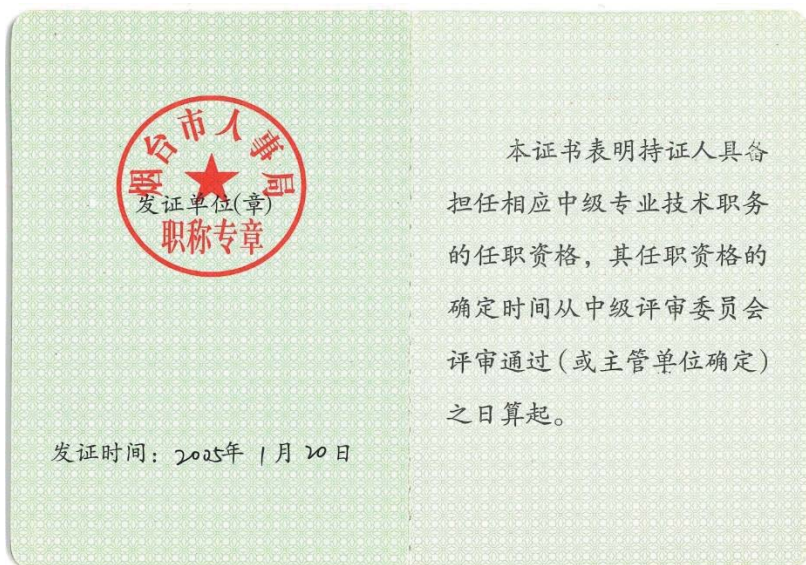 烟台市人事局
发证单位(章)
职称专章
发证时间：2005年 1月 20日
本证书表明持证人具备
担任相应中级专业技术职务
的任职资格，其任职资格的
确定时间从中级评审委员会
评审通过(或主管单位确定)
之日算起。